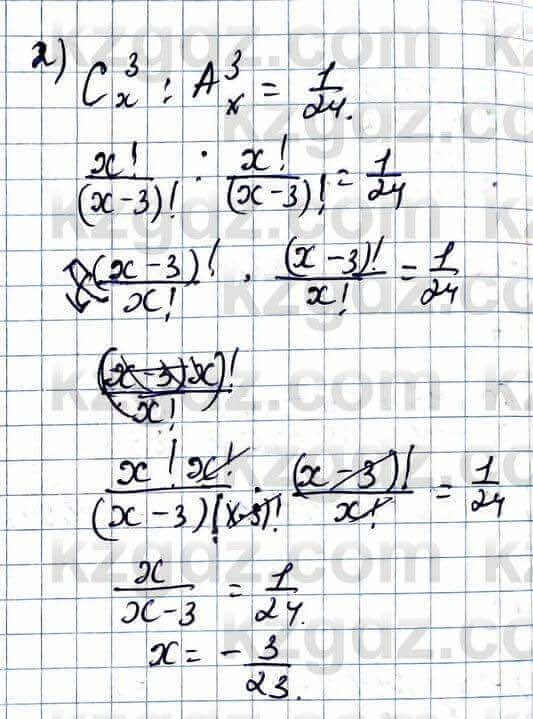 2) C_x^3 : A_x^3 = 1/24.
x!/(x-3)! : x!/(x-3)! = 1/24
(x-3)!/x! · (x-3)!/x! = 1/24
((x-3)x)!/x!
x! x!/(x-3)!(x-3)! · (x-3)!/x! = 1/24
x/x-3 = 1/24.
x = - 3/23.
kzgdz.com